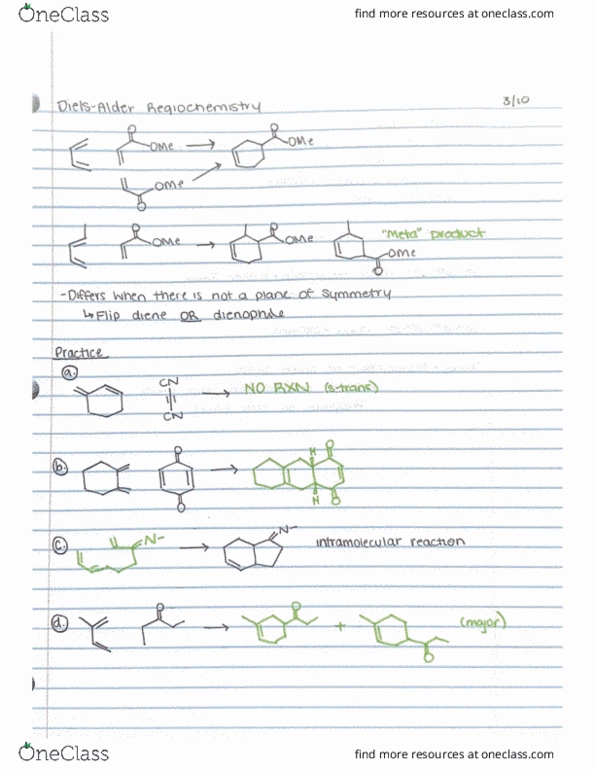 OneClass
find more resources at oneclass.com
Diels-Alder Regiochemistry
3/10
O
OMe
O
OMe
OMe
O
O
OMe
O
OMe
OMe
O
"Meta" product
-Differs when there is not a plane of symmetry
↳ Flip diene OR dienophile
Practice
a.
CN
CN
NO RXN (s-trans)
b.
O
O
H
H
O
O
c.
N-
N-
intramolecular reaction
d.
O
O
+
O
(major)
OneClass
find more resources at oneclass.com